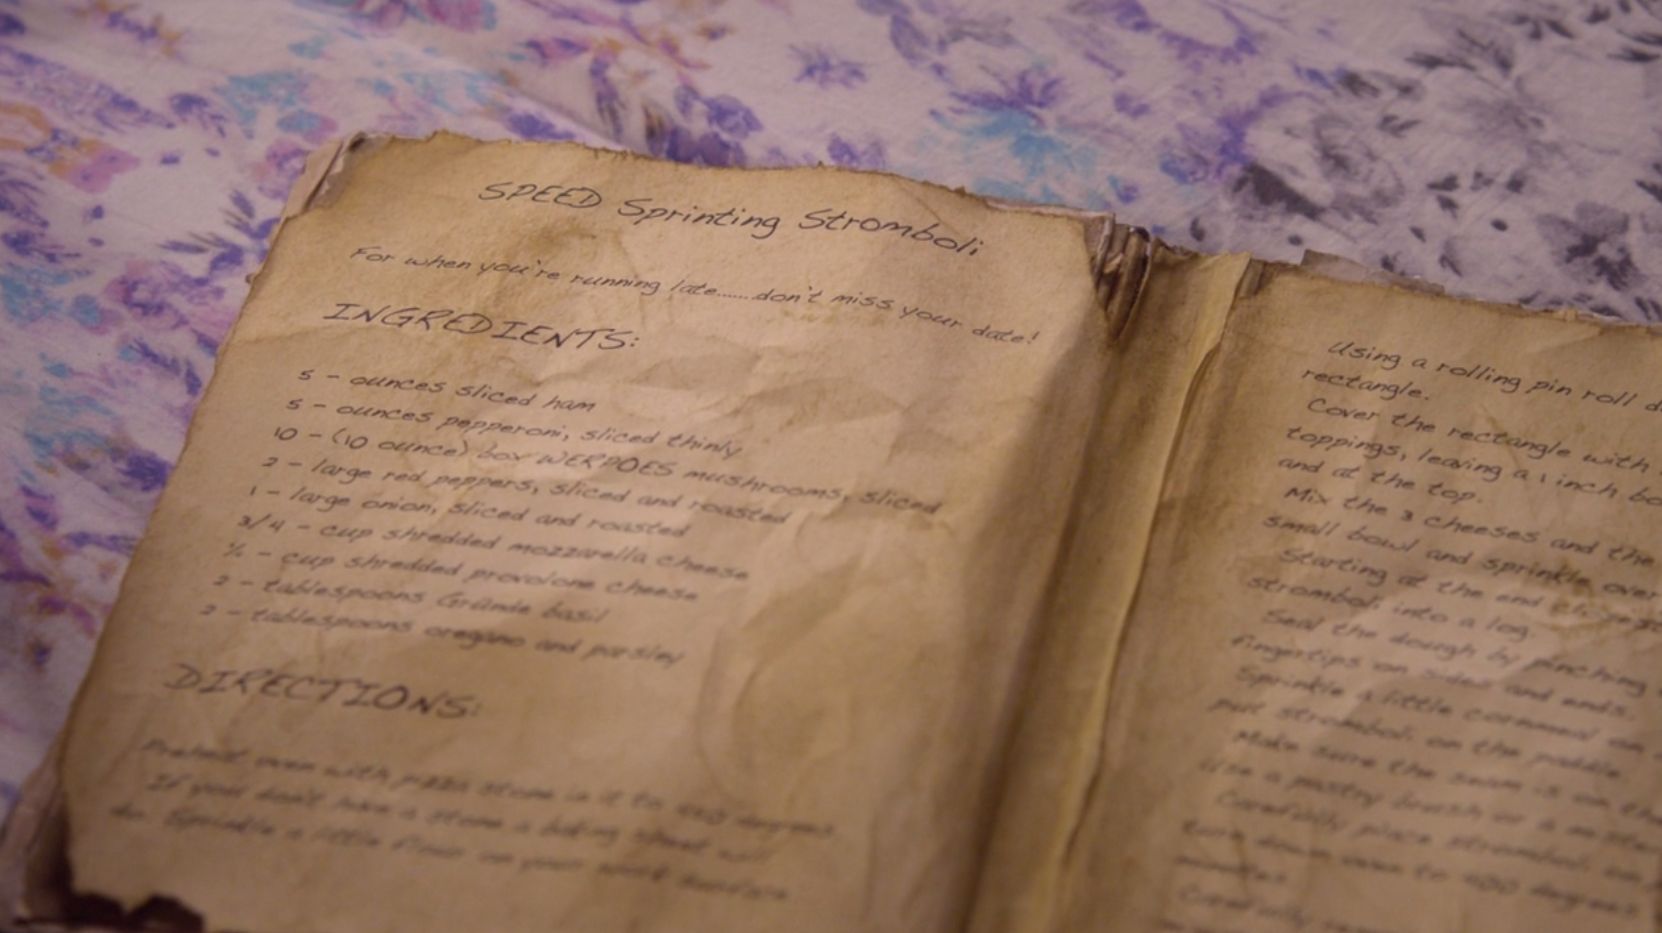 SPEED Sprinting Stromboli
For when you're running late......don't miss your date!
INGREDIENTS:
5 - ounces sliced ham
5 - ounces pepperoni, sliced thinly
10 - (10 ounce) box WERPOES mushrooms, sliced
2 - large red peppers, sliced and roasted
1 - large onion, sliced and roasted
3/4 - cup shredded mozzarella cheese
- cup shredded provolone cheese
2 - tablespoons Gründe basil
2 - tablespoons oregano and parsley
DIRECTIONS:
Preheat oven with pizza stone in it to degrees.
If you don't have a stone a baking sheet will
do. Sprinkle a little flour on your work surface.
Using a rolling pin roll
rectangle.
Cover the rectangle with
toppings, leaving a 1 inch
and at the top.
Mix the 3 cheeses and the
small bowl and sprinkle over
Starting at the end
stromboli into a log.
Seal the dough by pinching
fingertips on sides and ends.
Sprinkle a little cornmeal on
put stromboli on the paddle.
Make sure the seam is on the
Use a pastry brush or a
Carefully place stromboli on
turn down oven to 400 degrees
minutes.
Carefully